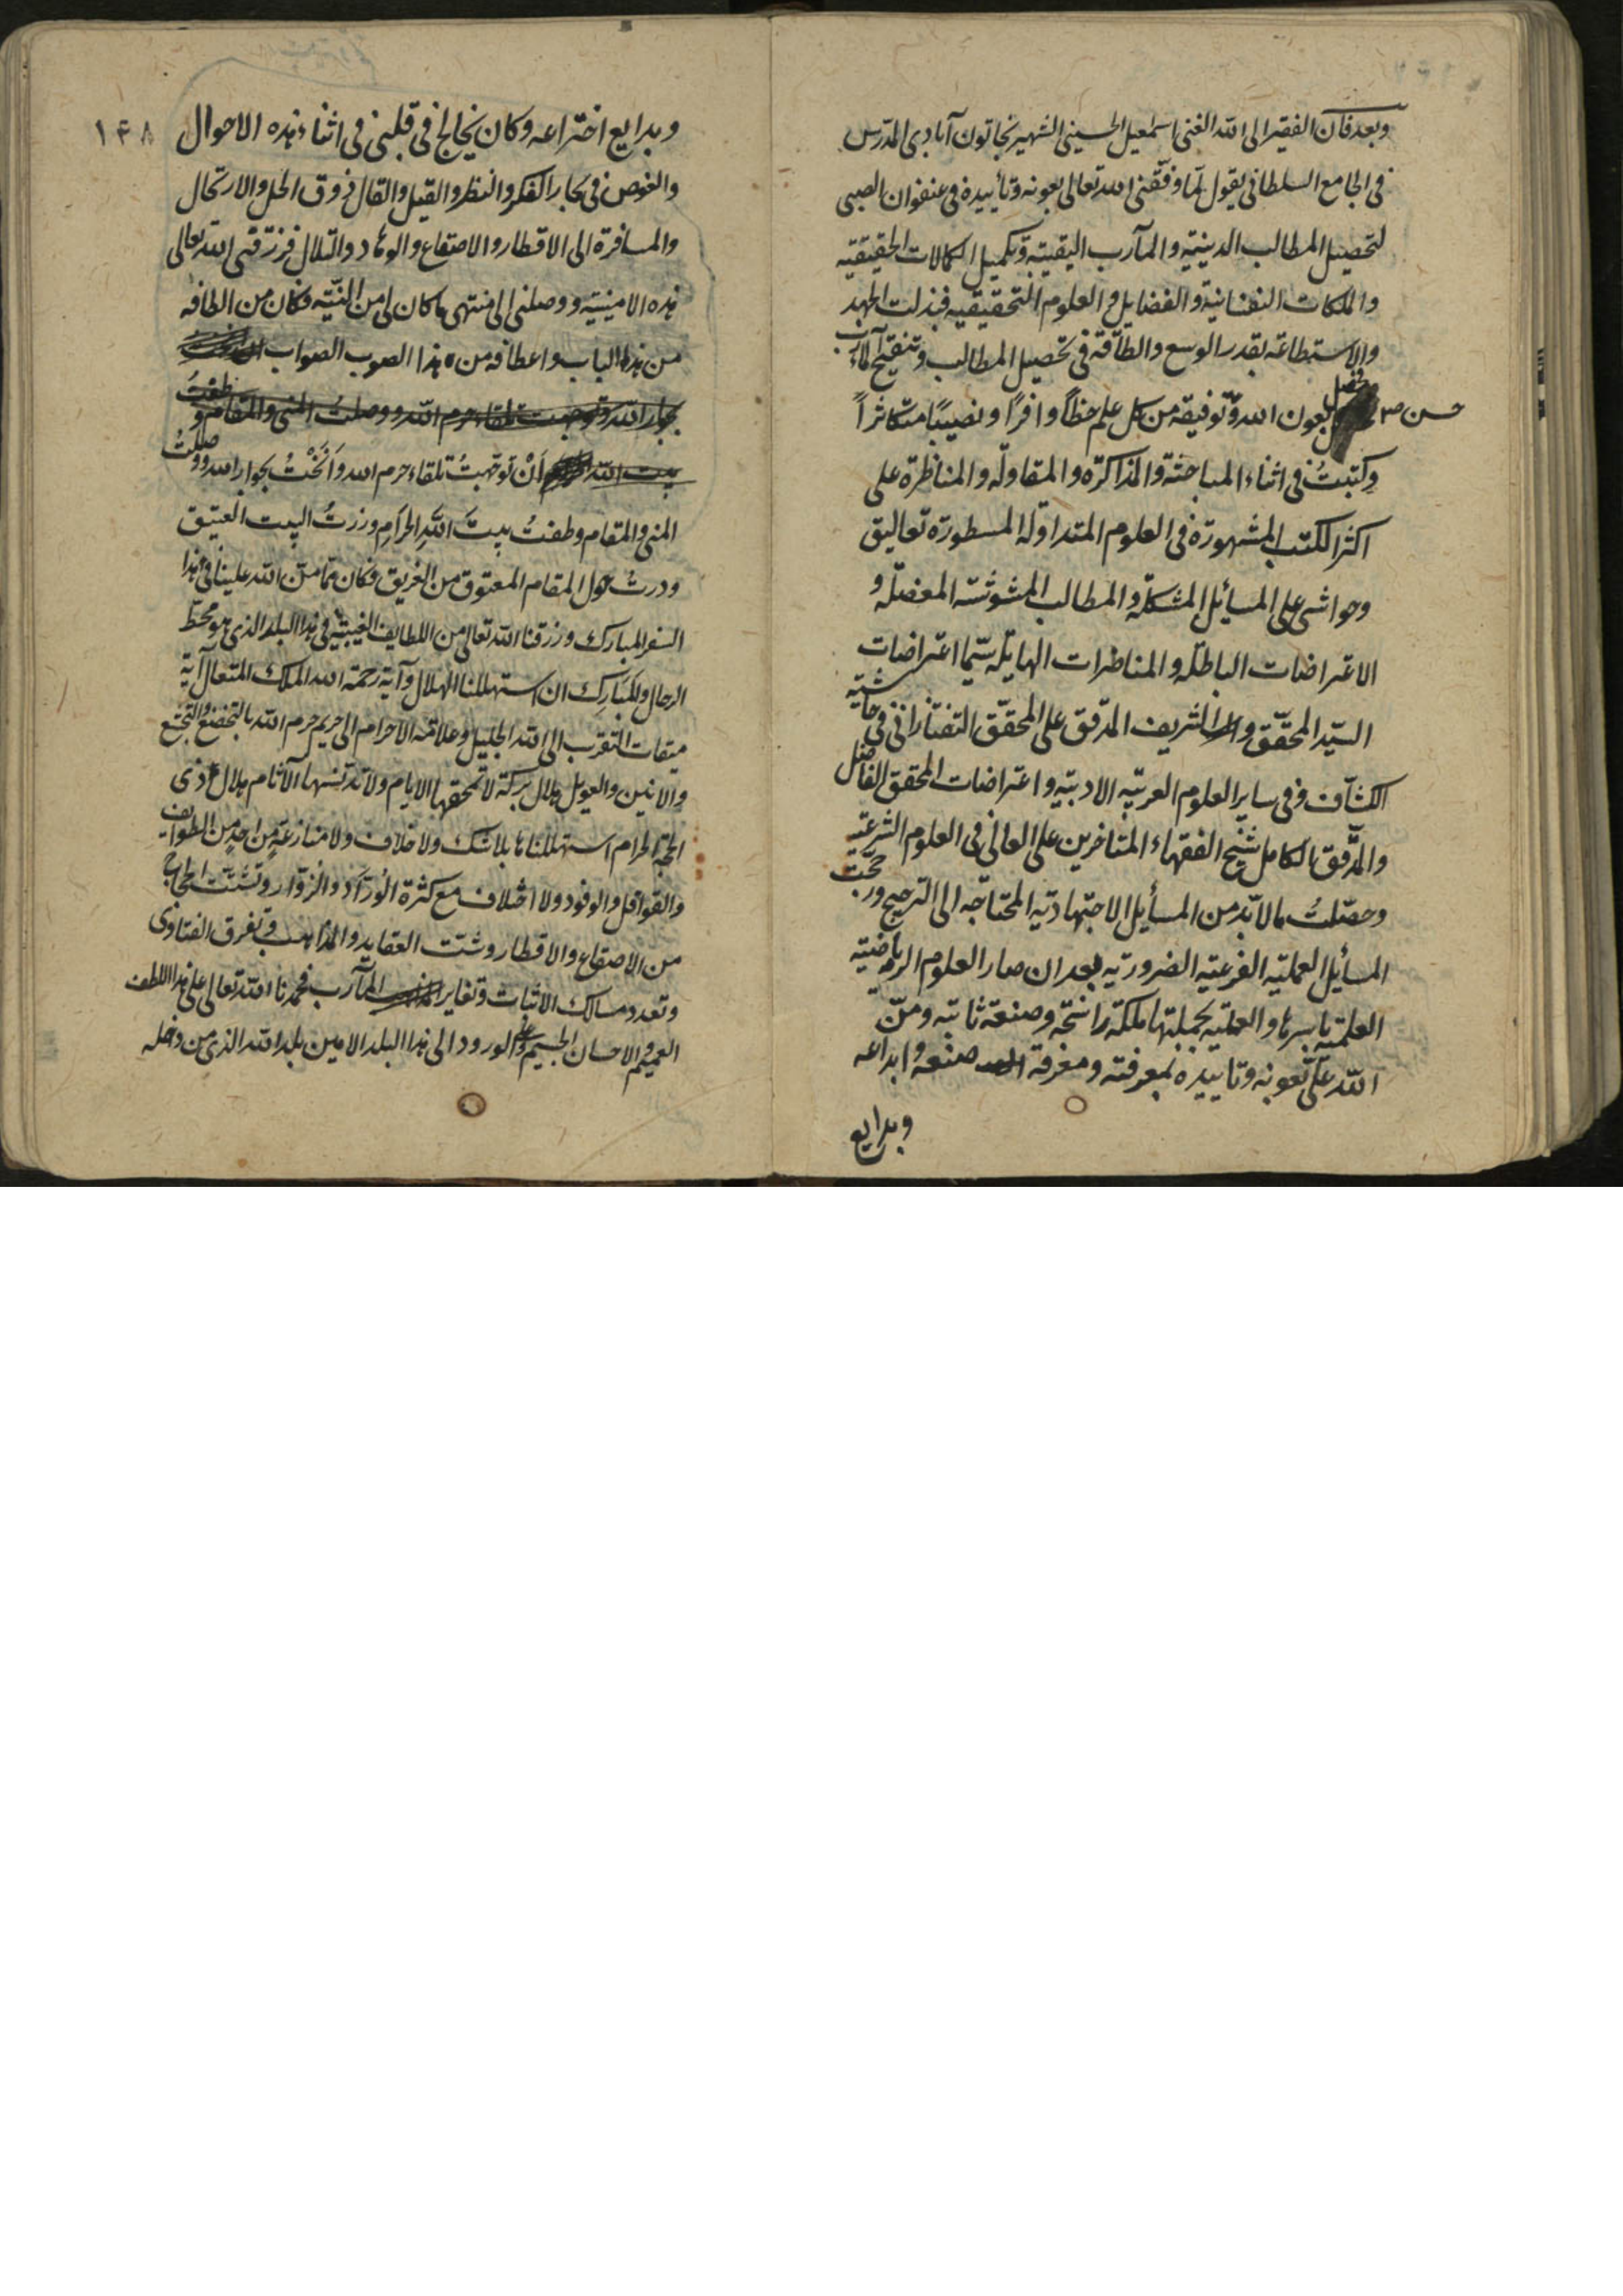 وبعد فان الفقير الى الله الغنى اسمعيل الحسينى الشهير بخاتون آبادى المدرس
فى الجامع السلطانى يقول لما وفقنى الله تعالى بعونه وتأييده فى عنفوان الصبى
لتحصيل المطالب الدينيه والمآرب اليقينيه وتكميل الكمالات الحقيقيه
والملكات النفسانية والفضايل والعلوم التحقيقيه فبذلت الجهد
والاستطاعة بقدر الوسع والطاقة فى تحصيل المطالب وتنقيح المآرب
حسن صح وحصل بعون الله وتوفيقه من كل علم حظاً وافرًا ونصيبًا متكاثراً
وكتبتُ فى اثناء المباحثة والمذاكرة والمقاوله والمناظرة على
اكثر الكتب المشهورة فى العلوم المتداوله المسطورة تعاليق
وحواشى على المسائل المشكله والمطالب المشوشة المعضله و
الاعتراضات الباطله والمناظرات الهايله سيّما اعتراضات
السيّد المحقّق والشريف المدقق على المحقّق التفتازانى فى حاشية
الكشاف وفى ساير العلوم العربيّه الادبيّه واعتراضات المحقق الفاضل
والمدّقق الكامل شيخ الفقهاء المتاخرين على العالى فى العلوم الشرعيّه
وحصّلتُ مالابدّ من المسأيل الاجتهاديّه المحتاجه الى الترجيح ورجّحت
المسأيل العمليّه الفرعيّه الضروريّه بعد ان صار العلوم الرياضيّه
العلميّه باسرها والعمليّه بجملتها ملكة راسخة وصنعة ثابته ومنّ
الله علىّ بعونه وتاييده بمعرفته ومعرفة صنعه وابداعه
وبدايع
١٤٨
وبدايع اختراعه وكان يخالج فى قلبى فى اثناء هذه الاحوال
والغوص فى بحار الفكر والنظر والقيل والقال ذوق الحل والارتحال
والمسافرة الى الاقطار والاصقاع والوهاد والتلال فرزقنى الله تعالى
هذه الامنيّة ووصلنى الى منتهى ماكان لى من النيّة وكان من الطافه
من هذا الباب واعطافه من هذا الصوب الصواب
بجوار الله وتوجهت تلقاء حرم الله ووصلتُ المنى والمقام وطفتُ
بيت الله الحرام اَنْ توَجّهتُ تلقاء حرم الله وَاَنَخْتُ بجوار الله ووصلتُ
المنى والمقام وطفتُ بيتَ اللهِ الحرامِ وزرتُ البيت العتيق
ودرتُ حول المقام المعتوق من الغريق فكان ممّا منّ الله علينا فى هذا
السفر المبارك ورزقنا الله تعالى من اللطايف الغيبيّة فى هذا البلد الذى هو محطّ
الرحال والمَبَارِك ان استهللنا الهلال وآية رحمة الله الملك المتعال آية
ميقات التقرب الى الله الجليل وعلامة الاحرام الى حريم حرم الله بالتخضّع والتخشّع
والانين والعويل هلال بركة لاتمحقها الايام ولاتدنسها الآثام هلال ذى
الحجّة الحرام استهللناها بلا شك ولا خلاف ولا منازعةٍ من احدٍ من الطوايف
والقوافل والوفود ولا اختلاف مع كثرة الوُرّاد والزوّار وتشتّت الحجاج
من الاصقاع والاقطار وشتت العقايد والمذاهب وتفرق الفتاوى
وتعدد مسالك الاثبات وتغاير المآرب فحمدنا الله تعالى على هذا اللطف
العميم والاحسان الجسيم وعلى الورود الى هذا البلد الامين بلد الله الذى من دخله